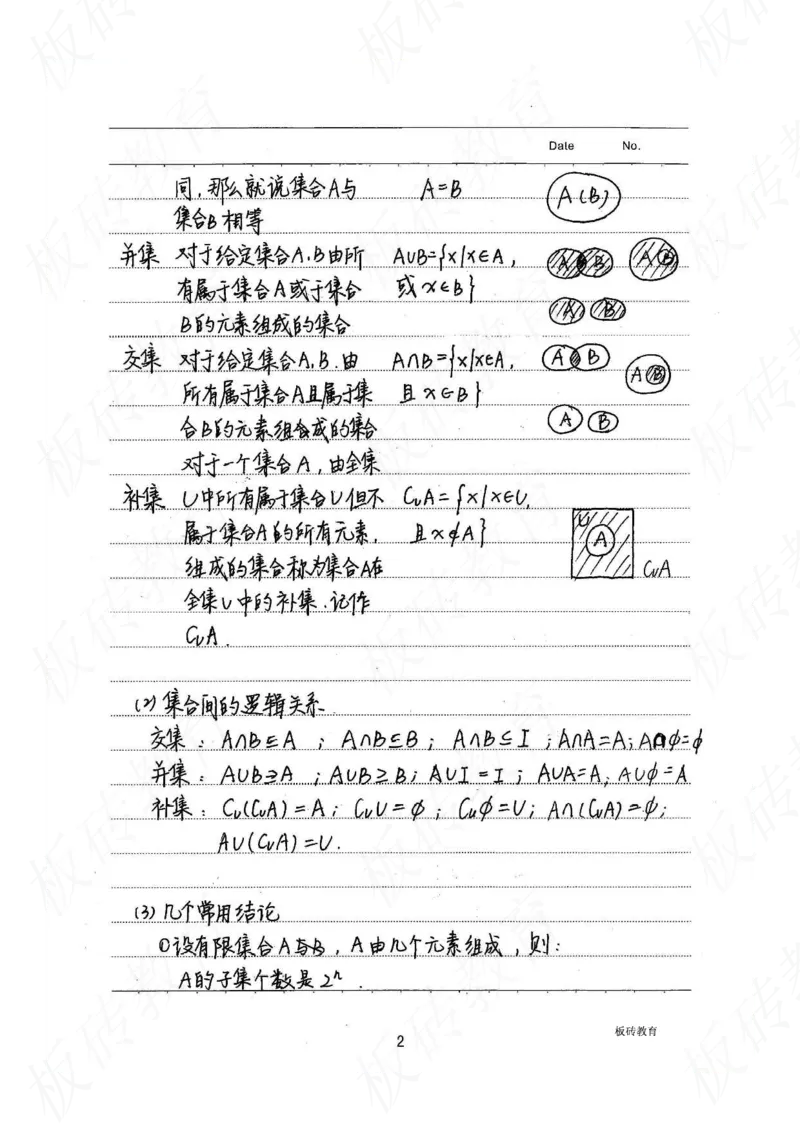 Date No.
同,那么就说集合A与 A=B A(B)
集合B相等
并集 对于给定集合A.B由所 A∪B={x|x∈A, A B A B
有属于集合A或于集合 或x∈B}
B的元素组成的集合 A B
交集 对于给定集合A.B.由 A∩B={x|x∈A, A B
所有属于集合A且属于集 且x∈B} A B
合B的元素组合成的集合 A B
对于一个集合A,由全集
补集 U中所有属于集合U但不 CuA={x|x∈U, U
属于集合A的所有元素, 且x∉A} A
组成的集合称为集合A在 CuA
全集U中的补集.记作
CuA.
(2)集合间的逻辑关系.
交集:A∩B⊆A ; A∩B⊆B; A∩B⊆I ;A∩A=A;A∩φ=φ
并集:A∪B⊇A ;A∪B⊇B; A∪I=I; A∪A=A, A∪φ=A
补集:Cu(CuA)=A; CuU=φ; Cuφ=U; A∩(CuA)=φ;
A∪(CuA)=U.
(3)几个常用结论
①设有限集合A与B,A由几个元素组成,则:
A的子集个数是2ⁿ.
板砖教育
2